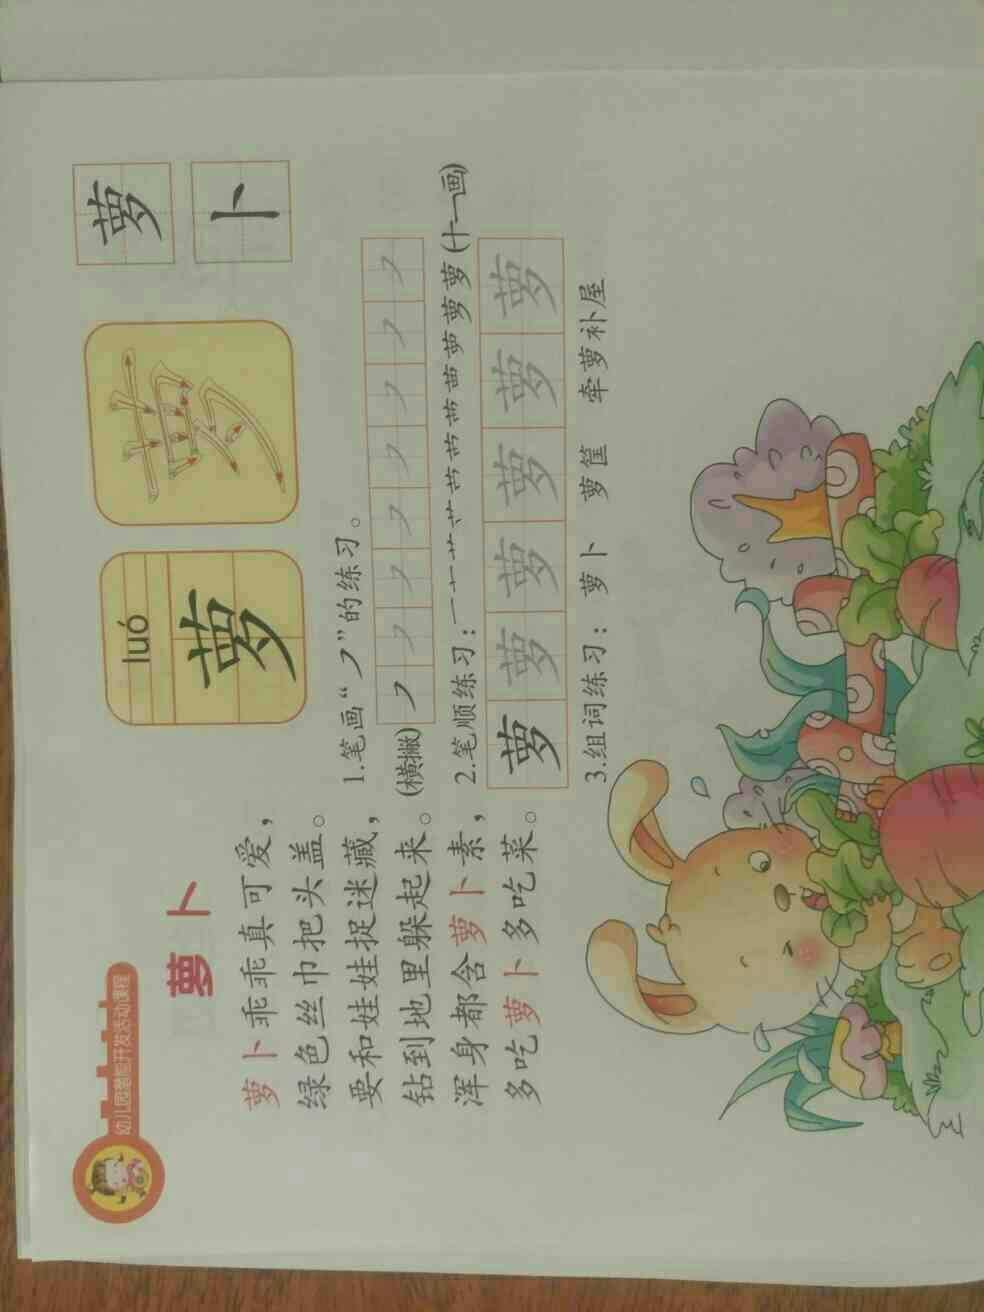 幼儿园潜能开发活动课程
萝卜
萝卜乖乖真可爱，
绿色丝巾把头盖。
要和娃娃捉迷藏，
钻到地里躲起来。
浑身都含萝卜素，
多吃萝卜多吃菜。
luó
萝
萝
萝
卜
1.笔画“㇇”的练习。
(横撇) ㇇ ㇇ ㇇ ㇇ ㇇ ㇇ ㇇ ㇇
2.笔顺练习：萝 萝 (十一画)
萝 萝 萝 萝 萝 萝
3.组词练习：萝卜 萝筐 牵萝补屋